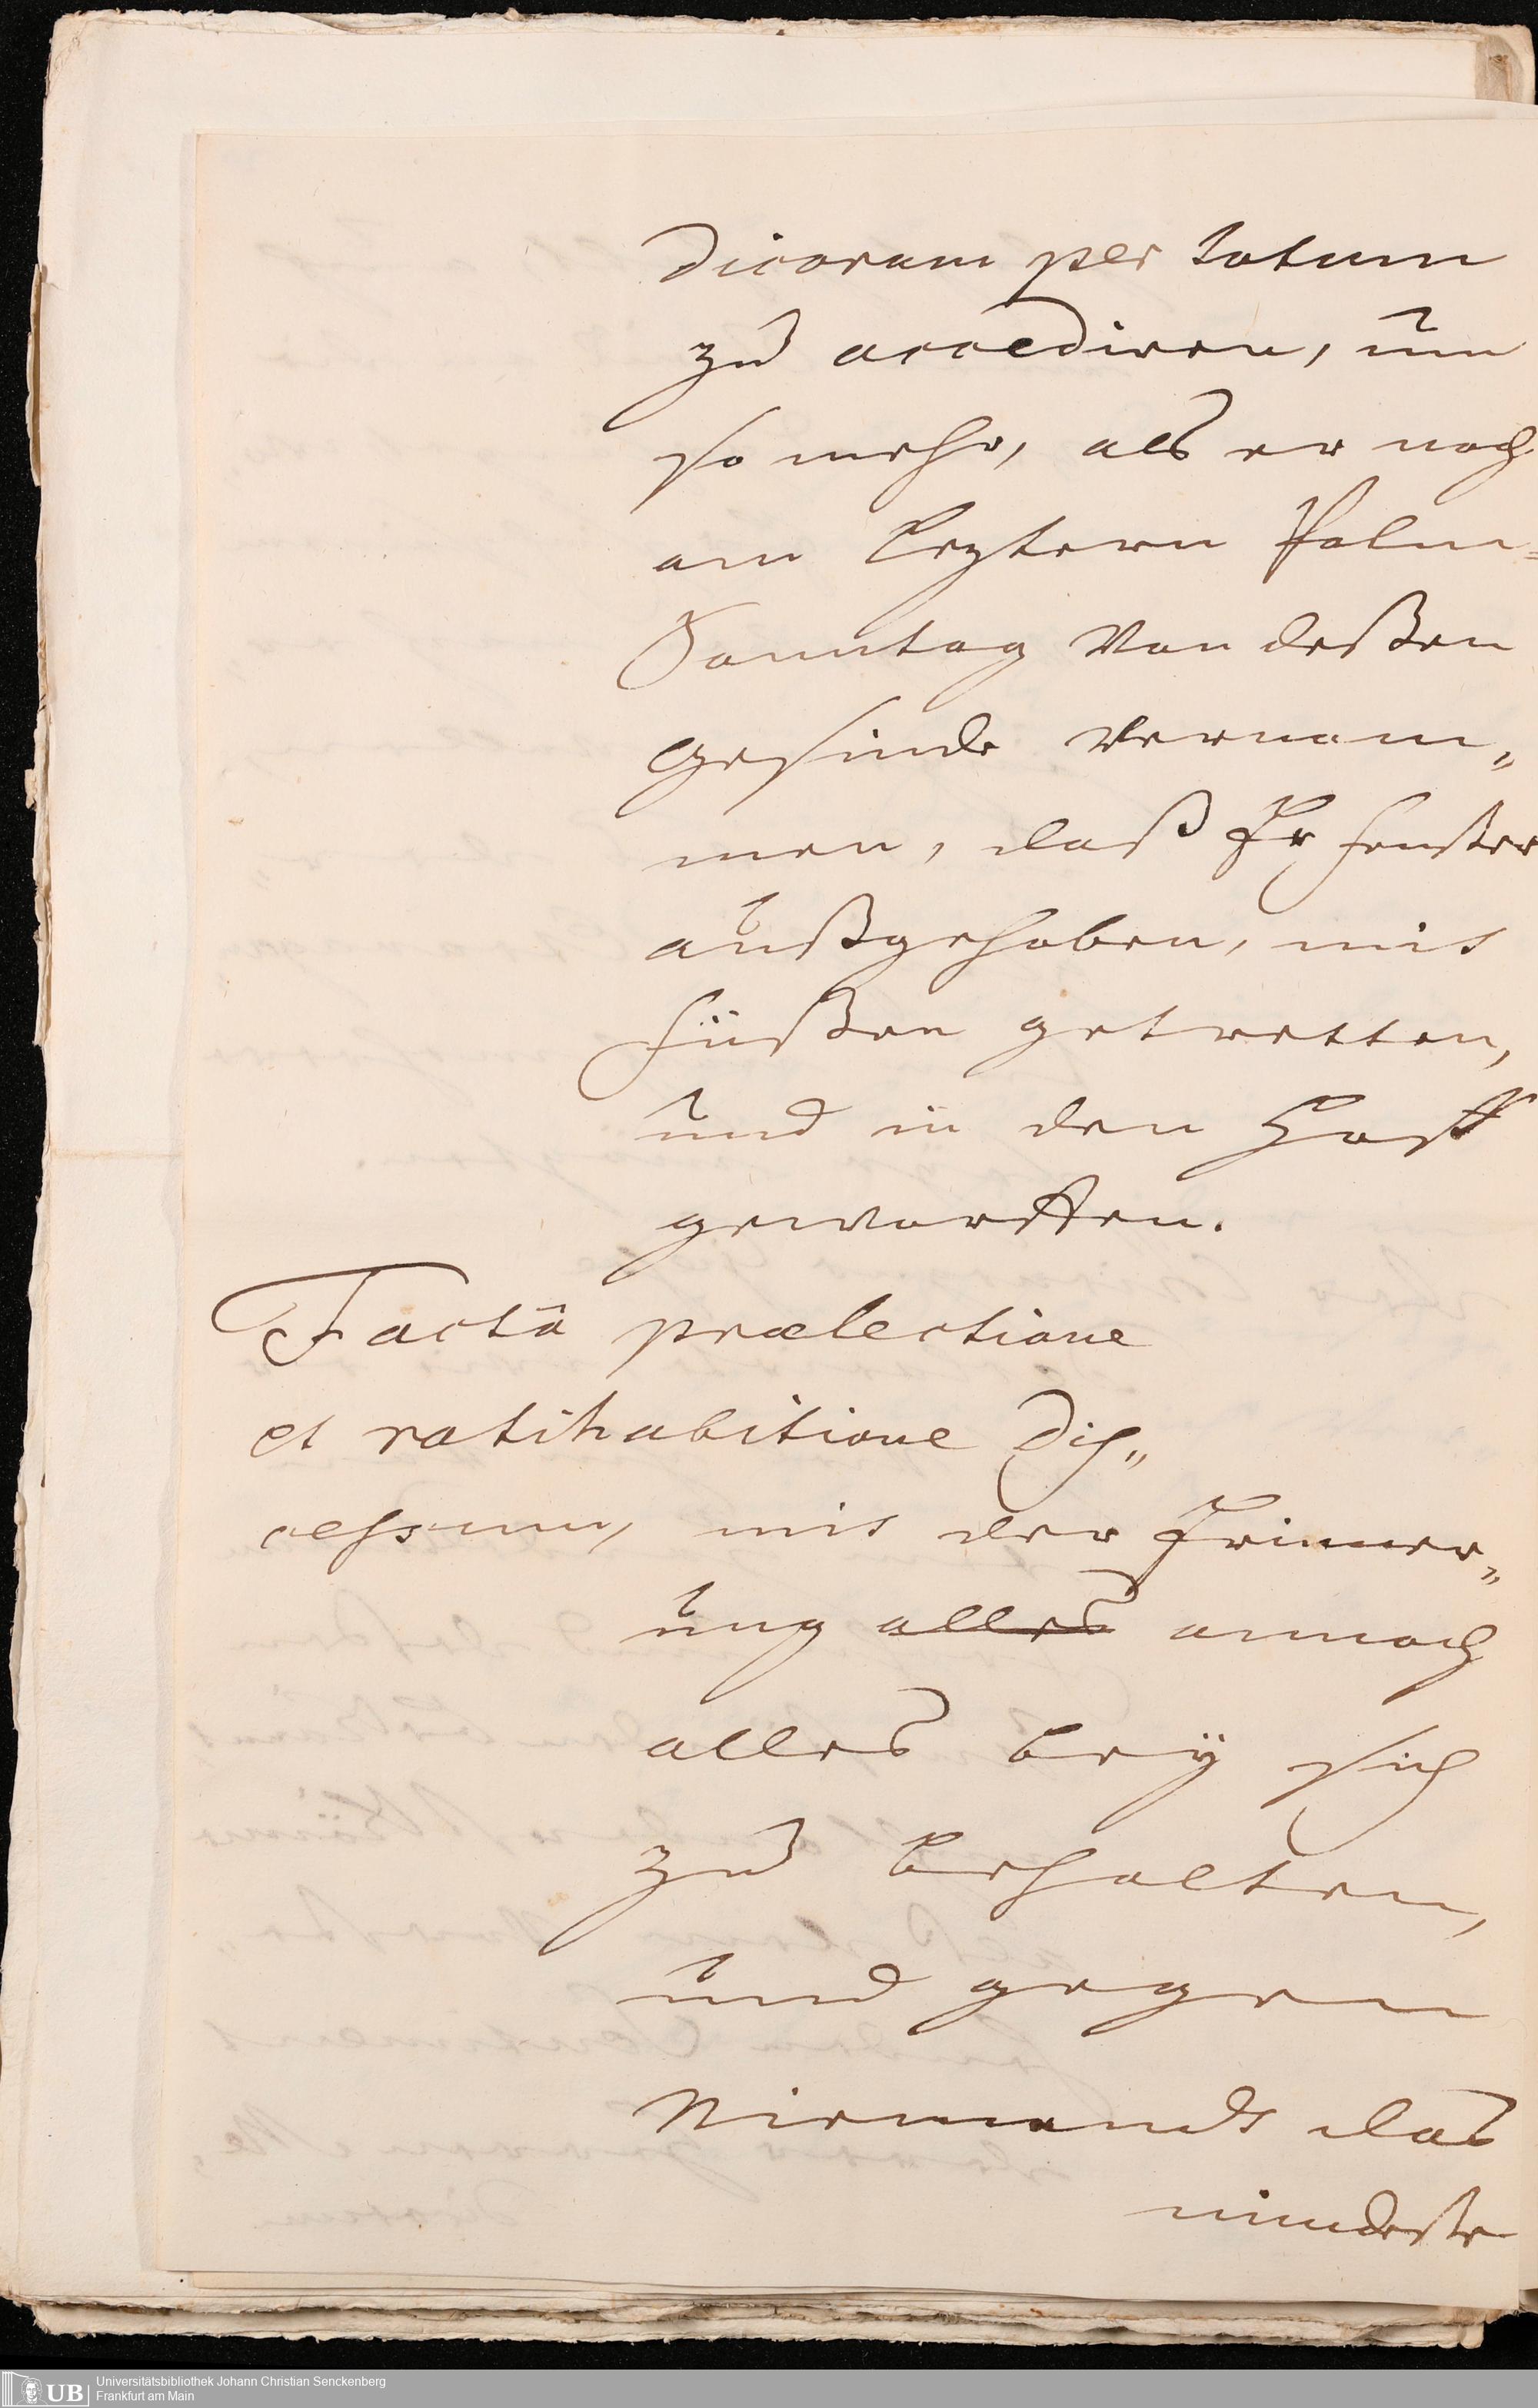 dicorum per totum
zu accediren, um
so mehr, als er noch
am leztern Palm=
Sonntag von deßen
Gesinde vernom„
men, daß Er Fenster
außgehoben, mit
Füßen getretten,
und in den Hoff
geworffen.
Factâ praelectione
et ratihabitione dis„
cessum, mit der Erinner„
ung alles annoch
alles bey sich
zu behalten,
und gegen
Niemands das
mindeste
UB
Universitätsbibliothek Johann Christian Senckenberg
Frankfurt am Main